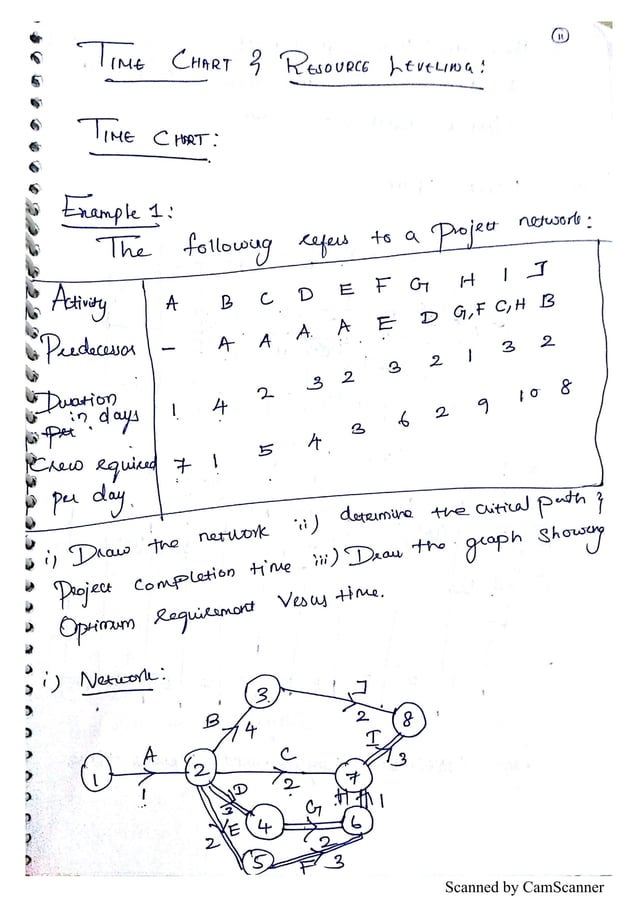 11
TIME CHART & RESOURCE LEVELING:
TIME CHART:
Example 1:
The following refers to a Project network:
Activity A B C D E F G H I J
Predecessor - A A A A E D G,F C,H B
Duration in days 1 4 2 3 2 3 2 1 3 2
Crew required per day. 7 1 5 4 3 6 2 9 10 8
i) Draw the network ii) determine the critical path &
Project completion time iii) Draw the graph showing
Optimum Requirement Vesus time.
i) Network:
3 J
B 4 2 8
A C I 3
1 2 2 7
1 D H 1
3 G 6
E 4 2
2 5 F 3
Scanned by CamScanner